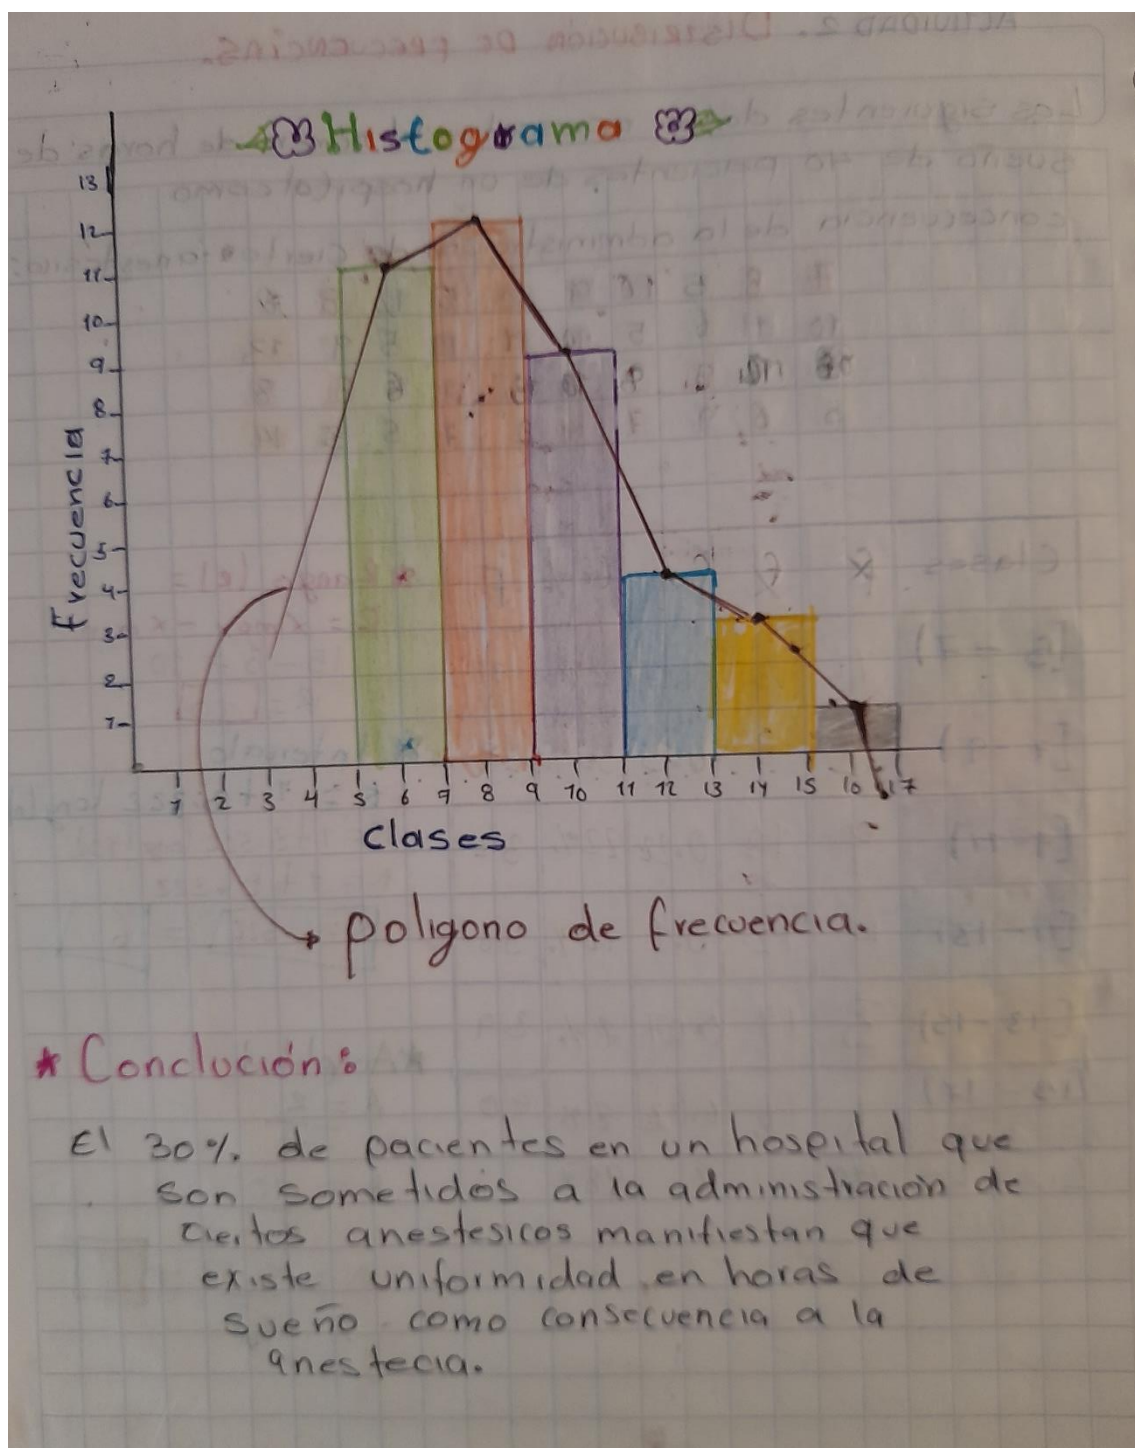 Histograma
13
12
11
10
9
8
7
6
5
4
3
2
1
frecuencia
1 2 3 4 5 6 7 8 9 10 11 12 13 14 15 16 17
Clases
poligono de frecuencia.
* Conclución:
El 30% de pacientes en un hospital que
son sometidos a la administración de
ciertos anestesicos manifiestan que
existe uniformidad en horas de
sueño como consecuencia a la
anestecia.